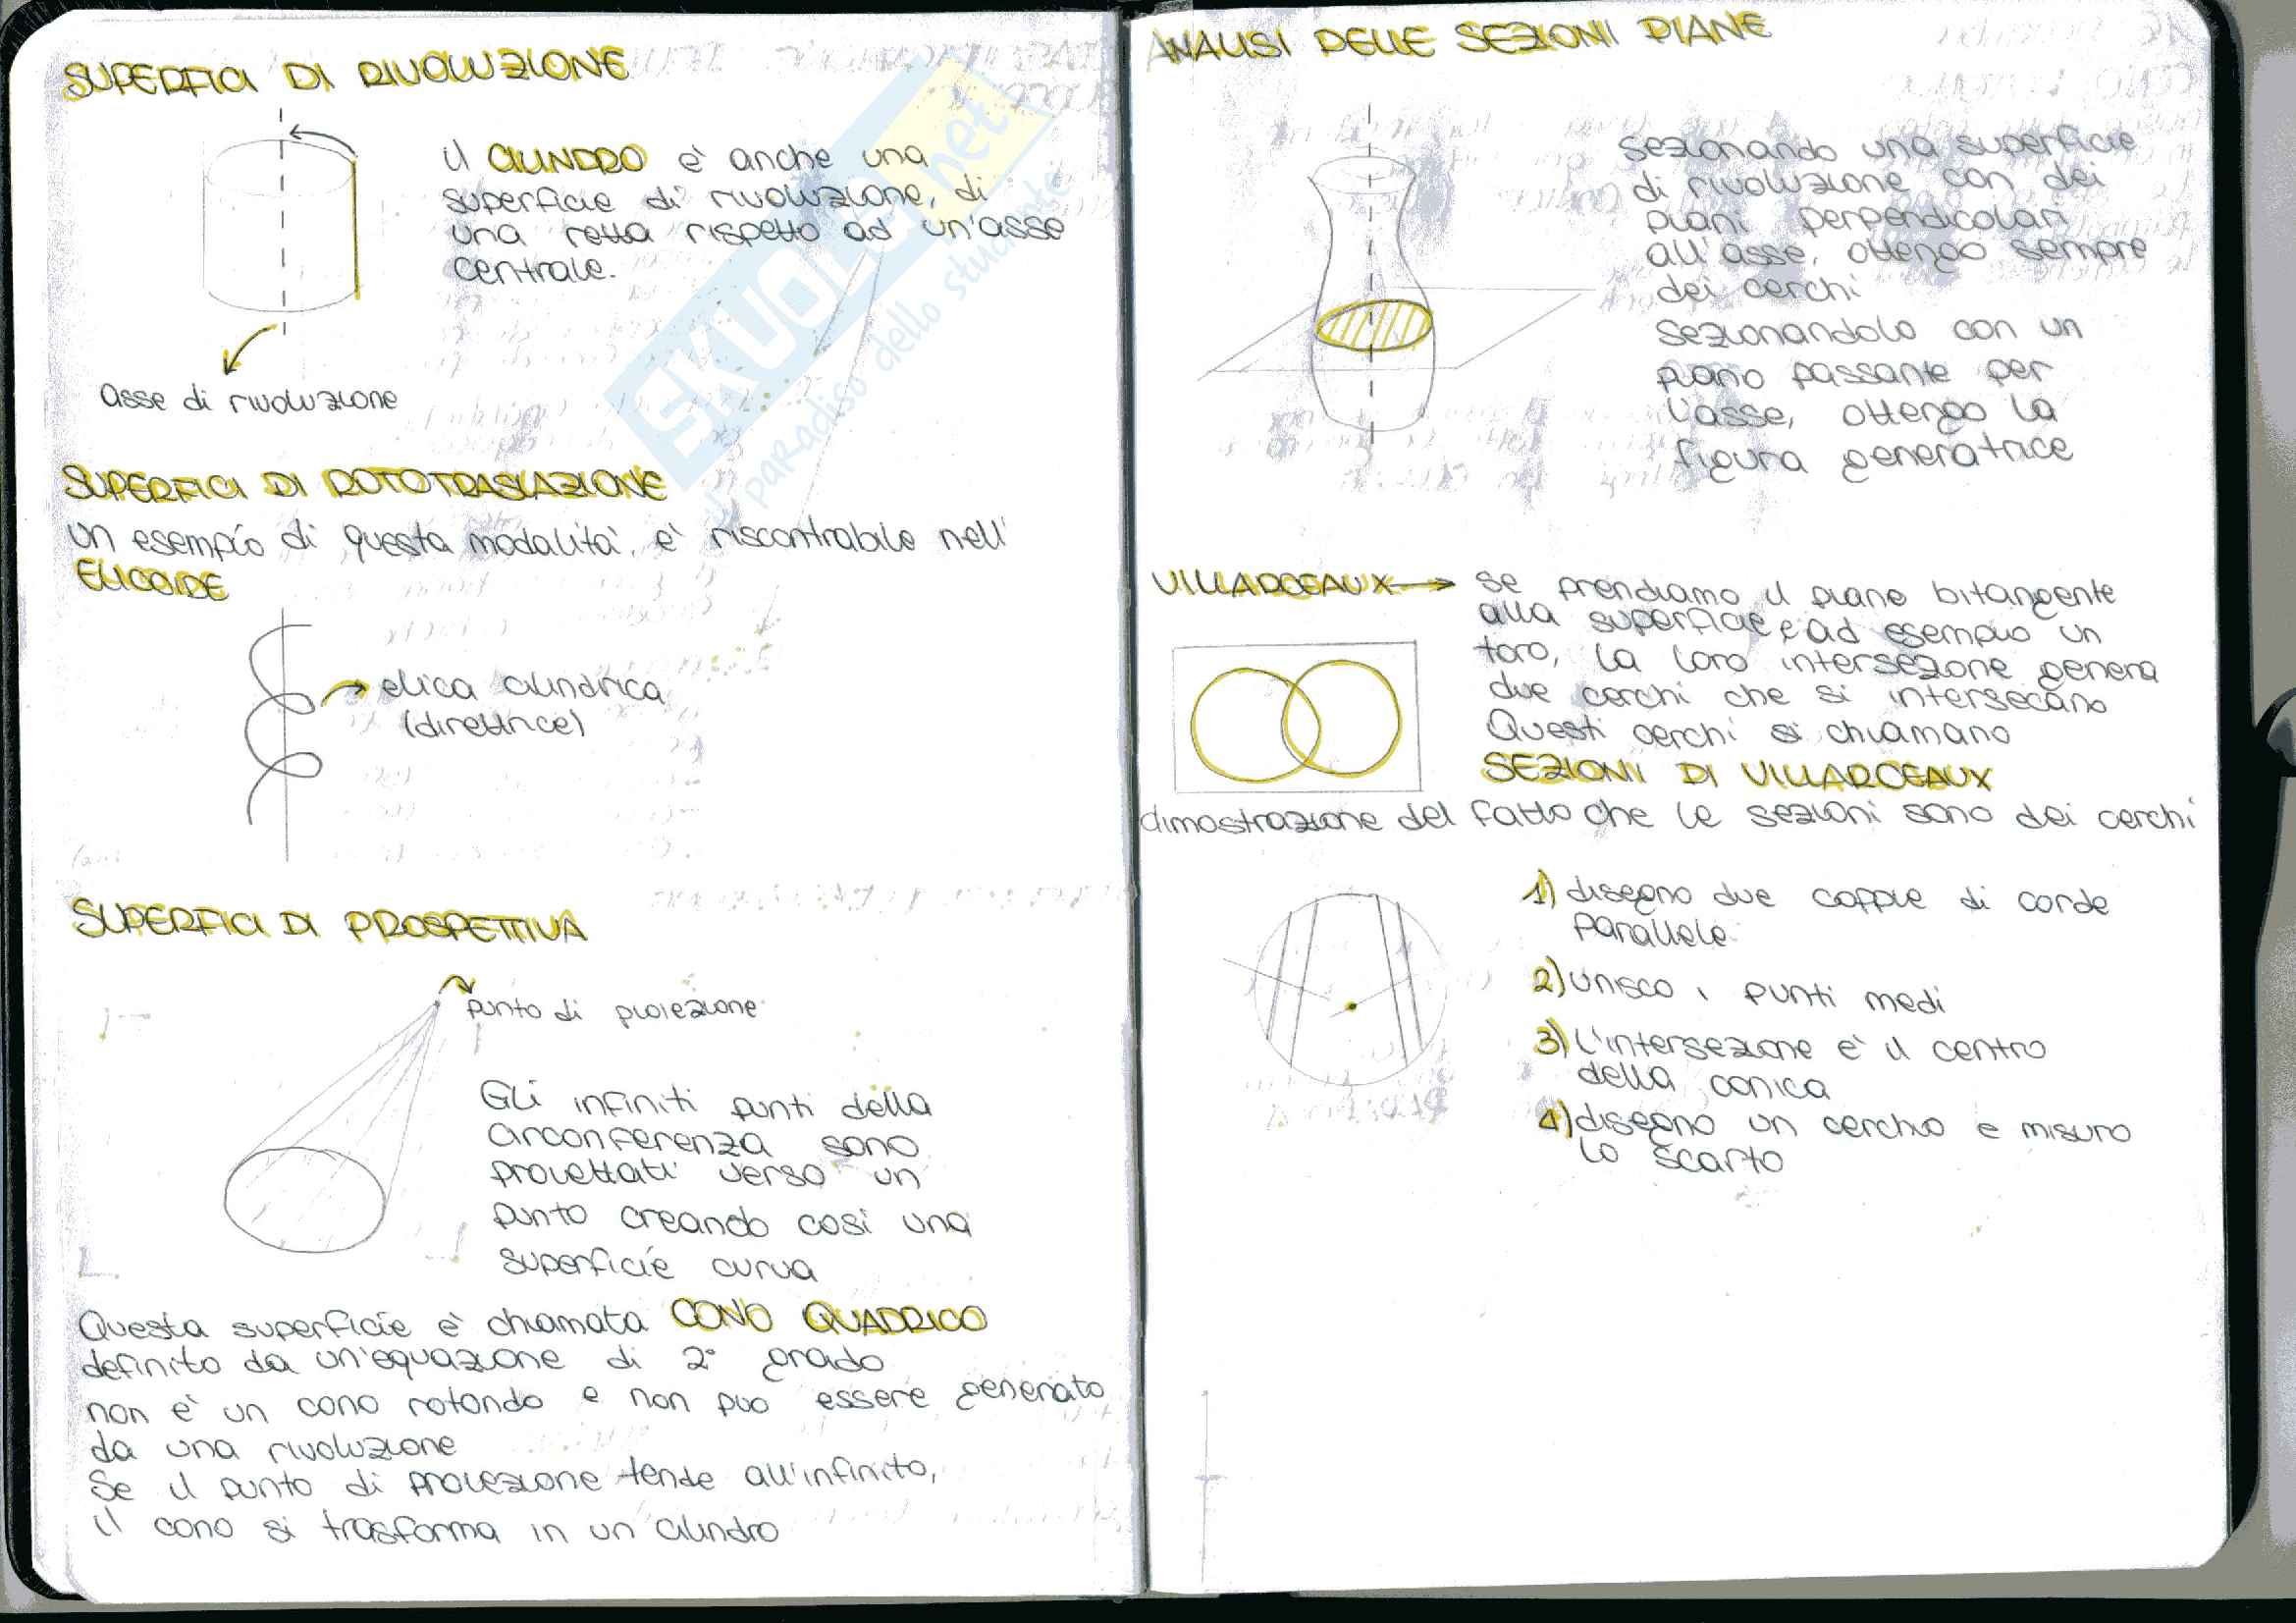 SUPERFICI DI RIVOLUZIONE
il CILINDRO è anche una
superficie di rivoluzione, di
una retta rispetto ad un'asse
centrale.
asse di rivoluzione
SUPERFICI DI ROTOTRASLAZIONE
un esempio di questa modalità, è riscontrabile nell'
ELICOIDE
elica cilindrica
(direttrice)
SUPERFICI DI PROSPETTIVA
punto di proiezione
Gli infiniti punti della
circonferenza sono
proiettati verso un
punto creando così una
superficie curva
Questa superficie è chiamata CONO QUADRICO
definito da un'equazione di 2° grado
non è un cono rotondo e non può essere generato
da una rivoluzione
Se il punto di proiezione tende all'infinito,
il cono si trasforma in un cilindro
ANALISI DELLE SEZIONI PIANE
sezionando una superficie
di rivoluzione con dei
piani perpendicolari
all'asse, ottengo sempre
dei cerchi
sezionandolo con un
piano passante per
l'asse, ottengo la
figura generatrice
VILLARCEAUX → se prendiamo il piano bitangente
alla superficie, ad esempio un
toro, la loro intersezione genera
due cerchi che si intersecano
Questi cerchi si chiamano
SEZIONI DI VILLARCEAUX
dimostrazione del fatto che le sezioni sono dei cerchi
1) disegno due coppie di corde
parallele
2) unisco i punti medi
3) l'intersezione è il centro
della conica
4) disegno un cerchio e misuro
lo scarto
SKUOLA.net
il paradiso dello studente